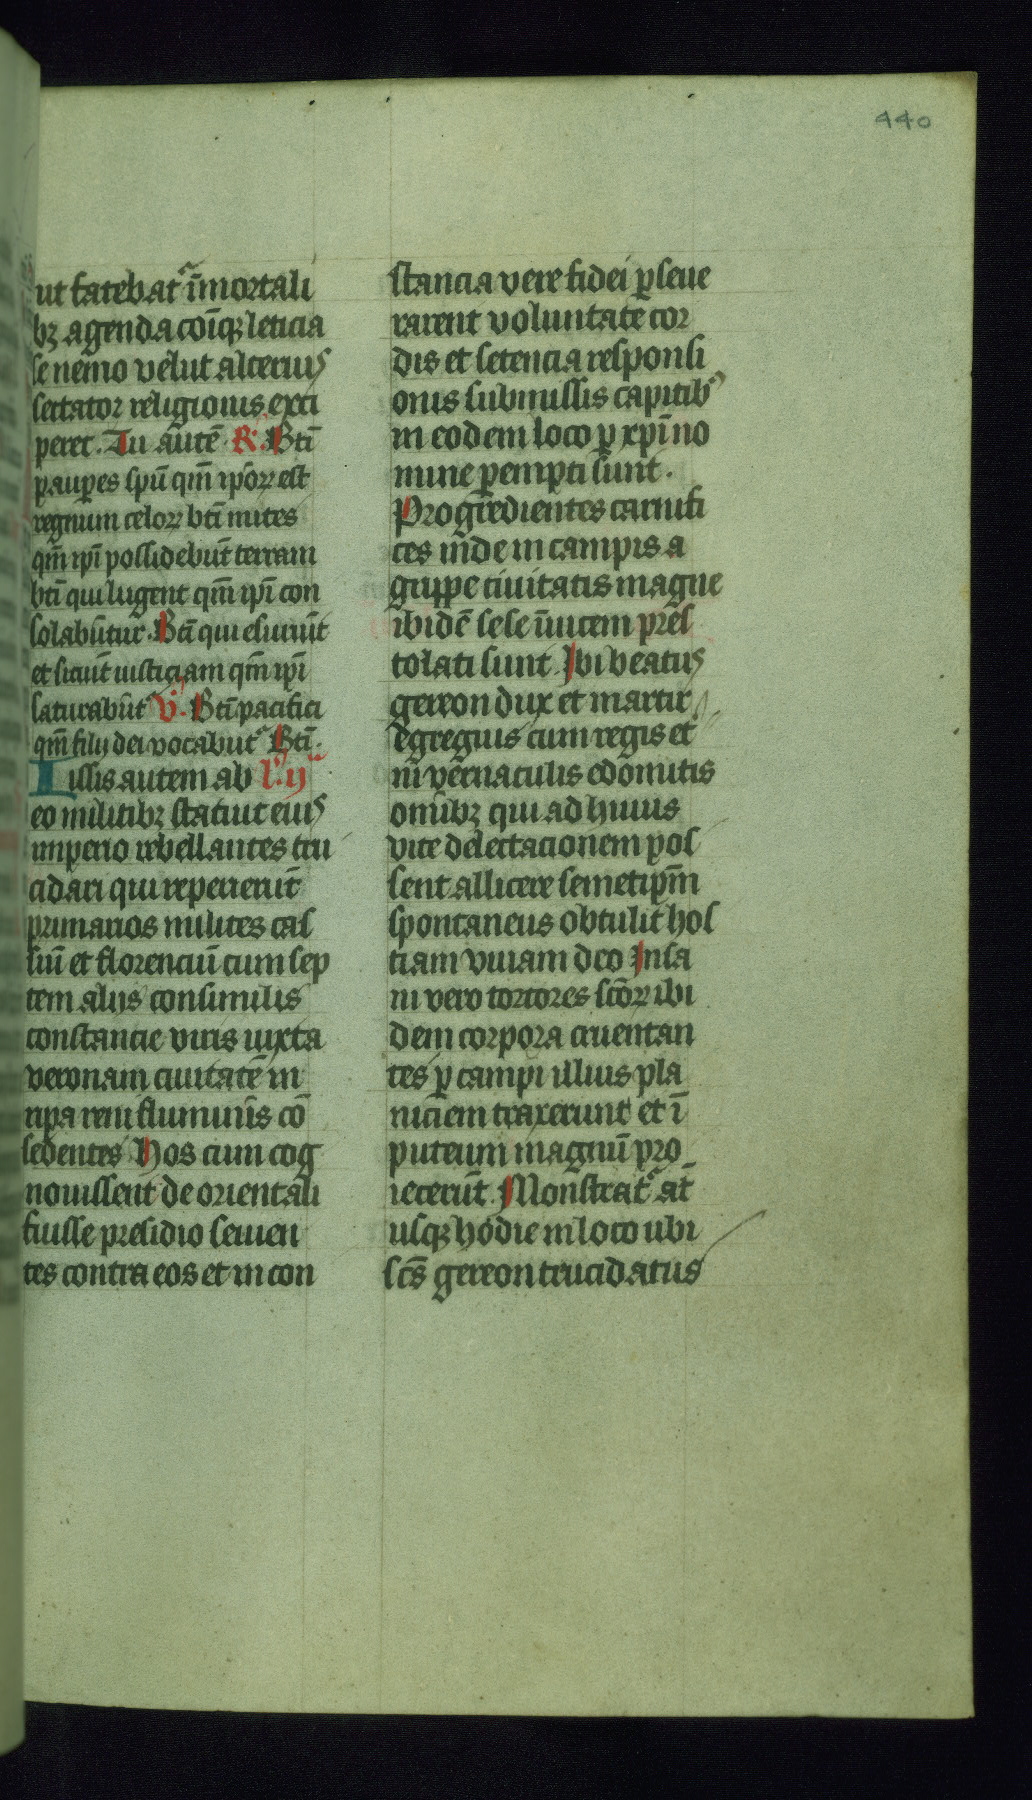 440
ut fatebat᷑ īmortali
bꝫ agenda coīqꝫ leticia
se nemo velut alterius
sectator religionis exci
peret. Tu autē R̷. Bti̅
pauꝑes spū qm̄ ip̄oꝝ est
regnum celoꝝ bt̄i mites
qm̄ ip̄i possidebūt terram
bt̄i qui lugent qm̄ ip̄i con
solabūtur. Bt̄i qui esuriūt
et siciūt iusticiam qm̄ ip̄i
saturabūt V̷. Bt̄i pacifici
qm̄ filij dei vocabūt᷑ Bt̄i.
Missis autem ab l᷑. ij
eo militibꝫ statuit eius
imperio rebellantes tru
cidari qui repererūt
primarios milites cas
siū et florenciū cum sep
tem alijs consimilis
constancie viris iuxta
veronam ciuitatē in
ripa reni fluminis cō
sedentes Hos cum cog
nouissent de orientali
fuisse presidio seuien
tes contra eos et in con
stancia vere fidei ꝑseue
rarent voluntate cor
dis et setencia responsi
onis submissis capitibꝰ
in eodem loco ꝑ xp̄i no
mine ꝑempti sunt.
Progredientes carnifi
ces inde in campis a
grippe ciuitatis magne
ibidē sese īuicem pres
tolati sunt. Ibi beatus
gereon dux et martir
egregius cum regis et
ni vernaculis edomitis
omībꝫ qui ad huius
vite delectacionem pos
sent allicere semetip̄m
spontaneus obtulit hos
tiam viuam deo Insa
ni vero tortores sc̄oꝝ ibi
dem corpora cruentan
tes ꝑ campi illius pla
niciem traxerunt et ī
puteum magnū pro
iecerūt. Monstrat᷑ at̄
usqꝫ hodie in loco ubi
sc̄s gereon trucidatus